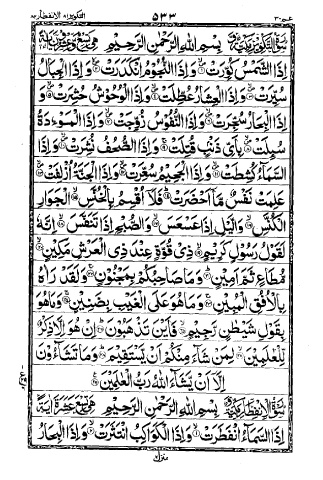 عـم ٣٠ ٥٣٣ التكوير ٨١ الانفطار ٨٢
سُوْرَةُ التَّكْوِيْرِ مَكِّيَّةٌ بِسْمِ اللهِ الرَّحْمٰنِ الرَّحِيْمِ هِيَ تِسْعٌ وَّعِشْرُوْنَ اٰيَةً
اِذَا الشَّمْسُ كُوِّرَتْ ۝ وَاِذَا النُّجُوْمُ انْكَدَرَتْ ۝ وَاِذَا الْجِبَالُ
سُيِّرَتْ ۝ وَاِذَا الْعِشَارُ عُطِّلَتْ ۝ وَاِذَا الْوُحُوْشُ حُشِرَتْ ۝ وَ
اِذَا الْبِحَارُ سُجِّرَتْ ۝ وَاِذَا النُّفُوْسُ زُوِّجَتْ ۝ وَاِذَا الْمَوْءٗدَةُ
سُىِٕلَتْ ۝ بِاَيِّ ذَنْۢبٍ قُتِلَتْ ۝ وَاِذَا الصُّحُفُ نُشِرَتْ ۝ وَاِذَا
السَّمَآءُ كُشِطَتْ ۝ وَاِذَا الْجَحِيْمُ سُعِّرَتْ ۝ وَاِذَا الْجَنَّةُ اُزْلِفَتْ ۝
عَلِمَتْ نَفْسٌ مَّاۤ اَحْضَرَتْ ۝ فَلَاۤ اُقْسِمُ بِالْخُنَّسِ ۝ الْجَوَارِ
الْكُنَّسِ ۝ وَالَّيْلِ اِذَا عَسْعَسَ ۝ وَالصُّبْحِ اِذَا تَنَفَّسَ ۝ اِنَّهٗ
لَقَوْلُ رَسُوْلٍ كَرِيْمٍ ۝ ذِيْ قُوَّةٍ عِنْدَ ذِي الْعَرْشِ مَكِيْنٍ ۝
مُّطَاعٍ ثَمَّ اَمِيْنٍ ۝ وَمَا صَاحِبُكُمْ بِمَجْنُوْنٍ ۝ وَلَقَدْ رَاٰهُ
بِالْاُفُقِ الْمُبِيْنِ ۝ وَمَا هُوَ عَلَى الْغَيْبِ بِضَنِيْنٍ ۝ وَمَا هُوَ
بِقَوْلِ شَيْطٰنٍ رَّجِيْمٍ ۝ فَاَيْنَ تَذْهَبُوْنَ ۝ اِنْ هُوَ اِلَّا ذِكْرٌ
لِّلْعٰلَمِيْنَ ۝ لِمَنْ شَآءَ مِنْكُمْ اَنْ يَّسْتَقِيْمَ ۝ وَمَا تَشَآءُوْنَ
اِلَّاۤ اَنْ يَّشَآءَ اللهُ رَبُّ الْعٰلَمِيْنَ ۝
سُوْرَةُ الْاِنْفِطَارِ مَكِّيَّةٌ بِسْمِ اللهِ الرَّحْمٰنِ الرَّحِيْمِ هِيَ تِسْعَ عَشْرَةَ اٰيَةً
اِذَا السَّمَآءُ انْفَطَرَتْ ۝ وَاِذَا الْكَوَاكِبُ انْتَثَرَتْ ۝ وَاِذَا الْبِحَارُ
منزل